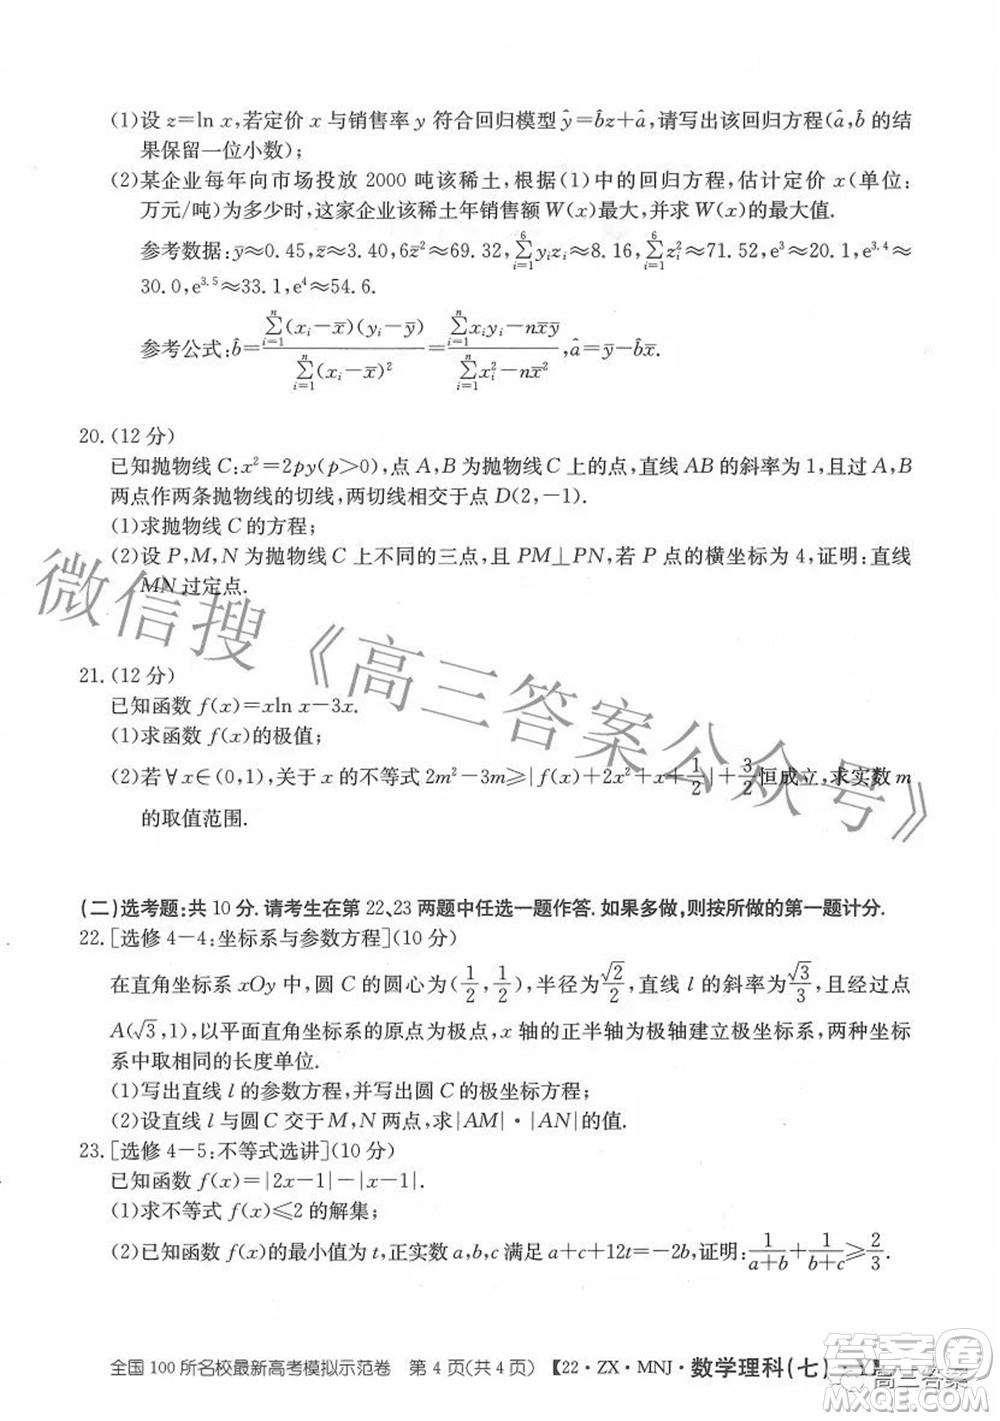 (1)设 z=ln x,若定价 x 与销售率 y 符合回归模型 ŷ=b̂z+â,请写出该回归方程(â,b̂ 的结
果保留一位小数);
(2)某企业每年向市场投放 2000 吨该稀土,根据(1)中的回归方程,估计定价 x(单位:
万元/吨)为多少时,这家企业该稀土年销售额 W(x)最大,并求 W(x)的最大值.
参考数据:ȳ≈0.45,z̄≈3.40,6z̄²≈69.32,∑_{i=1}^{6}y_iz_i≈8.16,∑_{i=1}^{6}z_i²≈71.52,e³≈20.1,e^{3.4}≈
30.0,e^{3.5}≈33.1,e⁴≈54.6.
参考公式:b̂=∑_{i=1}^{n}(x_i-x̄)(y_i-ȳ)/∑_{i=1}^{n}(x_i-x̄)²=(∑_{i=1}^{n}x_iy_i-nx̄ȳ)/(∑_{i=1}^{n}x_i²-nx̄²),â=ȳ-b̂x̄.
20.(12 分)
已知抛物线 C:x²=2py(p>0),点 A,B 为抛物线 C 上的点,直线 AB 的斜率为 1,且过 A,B
两点作两条抛物线的切线,两切线相交于点 D(2,-1).
(1)求抛物线 C 的方程;
(2)设 P,M,N 为抛物线 C 上不同的三点,且 PM⊥PN,若 P 点的横坐标为 4,证明:直线
MN 过定点.
21.(12 分)
已知函数 f(x)=xln x-3x.
(1)求函数 f(x)的极值;
(2)若∀x∈(0,1),关于 x 的不等式 2m²-3m≥|f(x)+2x²+x+1/2|+3/2恒成立,求实数 m
的取值范围.
(二)选考题:共 10 分.请考生在第 22、23 两题中任选一题作答.如果多做,则按所做的第一题计分.
22.[选修 4-4:坐标系与参数方程](10 分)
在直角坐标系 xOy 中,圆 C 的圆心为(1/2,1/2),半径为√2/2,直线 l 的斜率为√3/3,且经过点
A(√3,1),以平面直角坐标系的原点为极点,x 轴的正半轴为极轴建立极坐标系,两种坐标
系中取相同的长度单位.
(1)写出直线 l 的参数方程,并写出圆 C 的极坐标方程;
(2)设直线 l 与圆 C 交于 M,N 两点,求|AM|·|AN|的值.
23.[选修 4-5:不等式选讲](10 分)
已知函数 f(x)=|2x-1|-|x-1|.
(1)求不等式 f(x)≤2 的解集;
(2)已知函数 f(x)的最小值为 t,正实数 a,b,c 满足 a+c+12t=-2b,证明:1/(a+b)+1/(b+c)≥2/3.
全国 100 所名校最新高考模拟示范卷 第 4 页(共 4 页) 【22·ZX·MNJ·数学理科(七)
微信搜《高三答案公众号》
高三答案